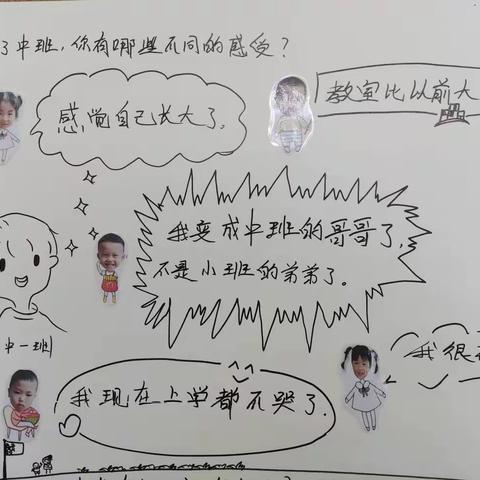 了中班,你有哪些不同的感受?
感觉自己长大了。
教室比以前大
我变成中班的哥哥了,
不是小班的弟弟了。
中一班
我很
我现在上学都不哭了.